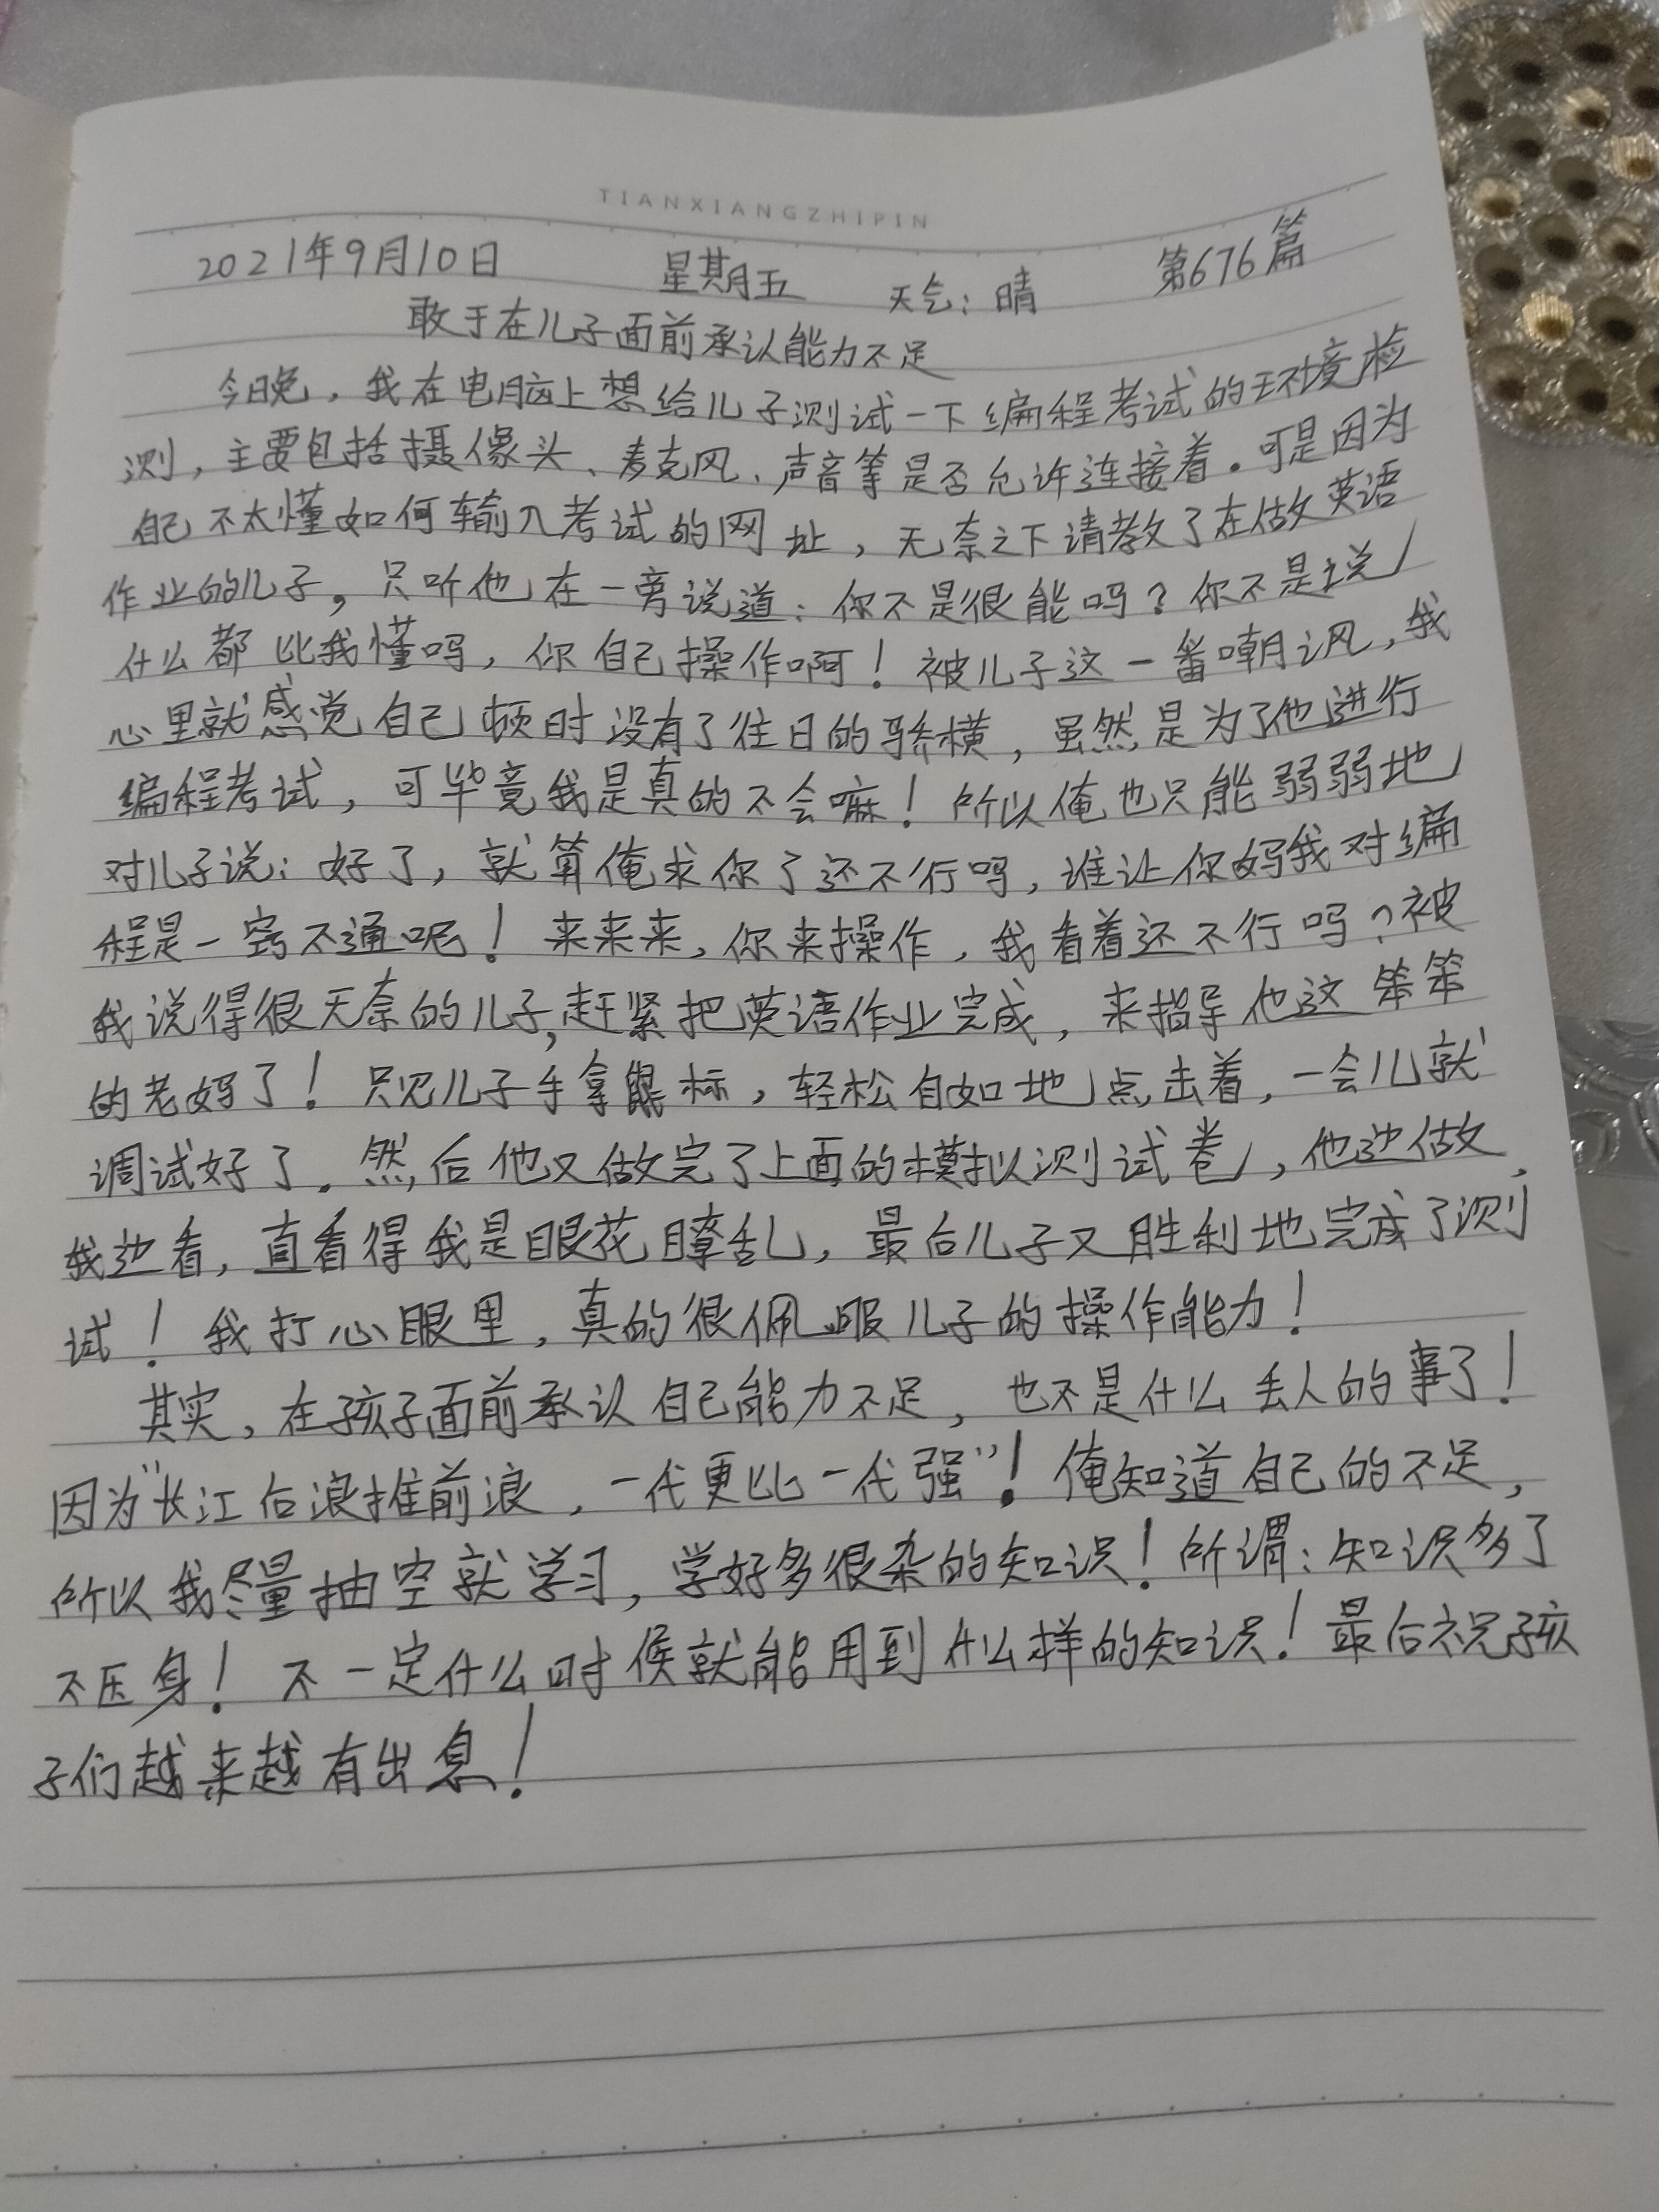 TIANXIANGZHIPIN
2021年9月10日 星期五 天气：晴 第676篇
敢于在儿子面前承认能力不足
今晚，我在电脑上想给儿子测试一下编程考试的环境检
测，主要包括摄像头、麦克风、声音等是否允许连接着。可是因为
自己不太懂如何输入考试的网址，无奈之下请教了在做英语
作业的儿子。只听他在一旁说道：你不是很能吗？你不是说
什么都比我懂吗，你自己操作啊！被儿子这一番嘲讽，我
心里就感觉自己顿时没有了往日的骄横，虽然是为了他进行
编程考试，可毕竟我是真的不会嘛！所以俺也只能弱弱地
对儿子说：好了，就算俺求你了还不行吗，谁让你妈我对编
程是一窍不通呢！来来来，你来操作，我看着还不行吗？被
我说得很无奈的儿子，赶紧把英语作业完成，来指导他这笨笨
的老妈了！只见儿子手拿鼠标，轻松自如地点击着，一会儿就
调试好了。然后他又做完了上面的模拟测试卷，他边做，
我边看，直看得我是眼花瞭乱，最后儿子又胜利地完成了测
试！我打心眼里，真的很佩服儿子的操作能力！
其实，在孩子面前承认自己能力不足，也不是什么丢人的事了！
因为“长江后浪推前浪，一代更比一代强”！俺知道自己的不足，
所以我尽量抽空就学习，学好多很杂的知识！所谓：知识多了
不压身！不一定什么时候就能用到什么样的知识！最后祝孩
子们越来越有出息！